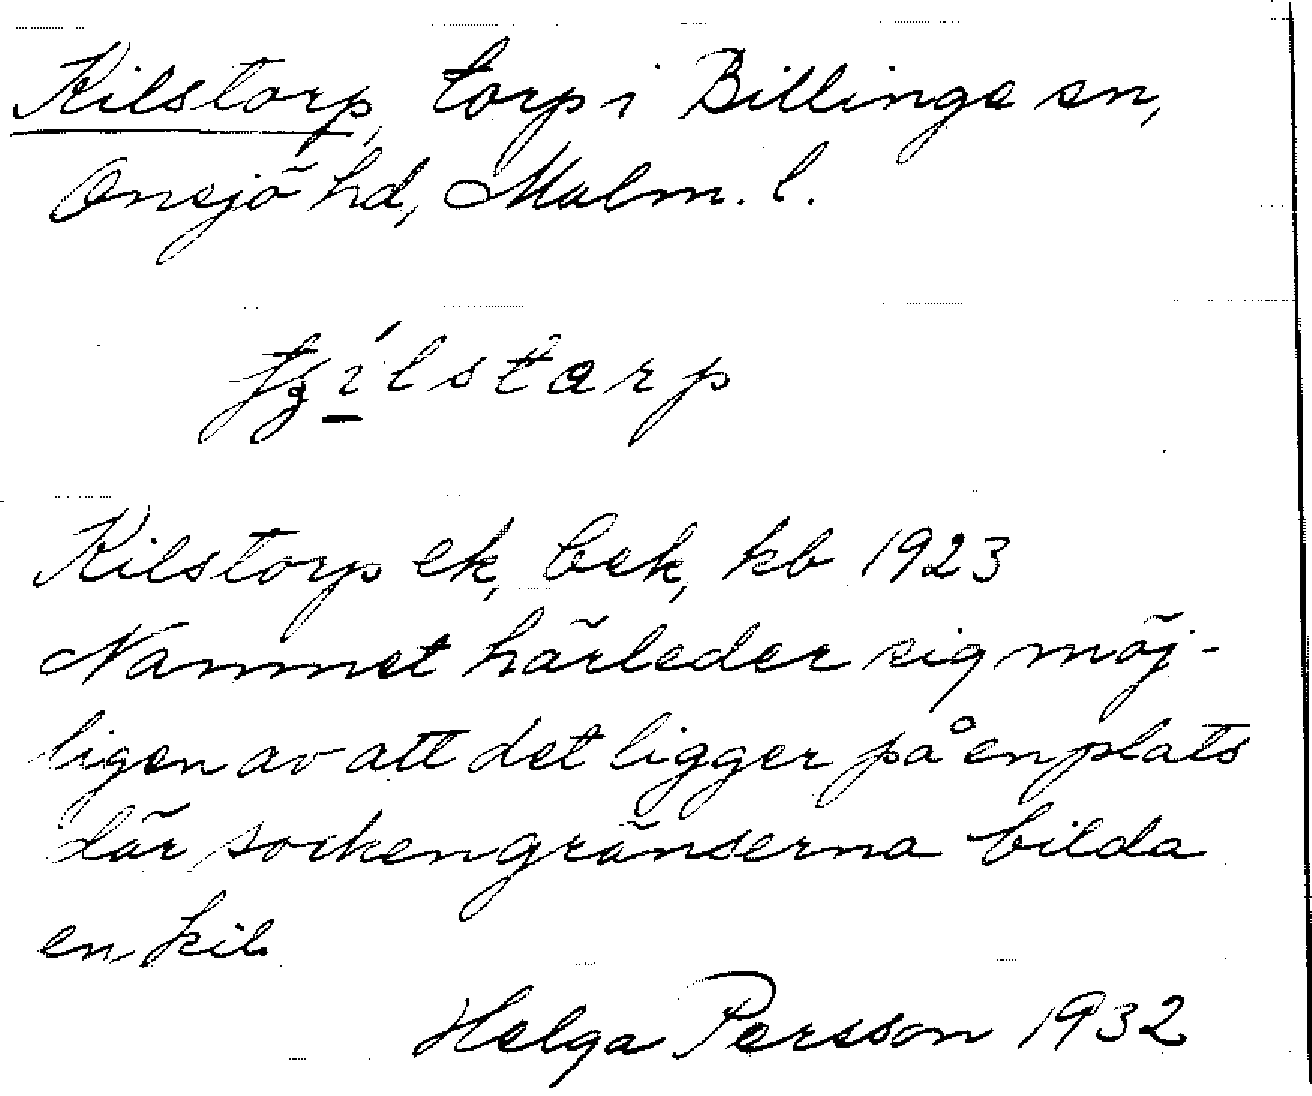 Kilstorp, torp i Billinge sn,
Onsjö hd, Malm. l.
Kilstorp ek, bek, kb 1923
Namnet härleder sig möj-
ligen av att det ligger på en plats
där sockengränserna bilda
en kil.
Helga Persson 1932